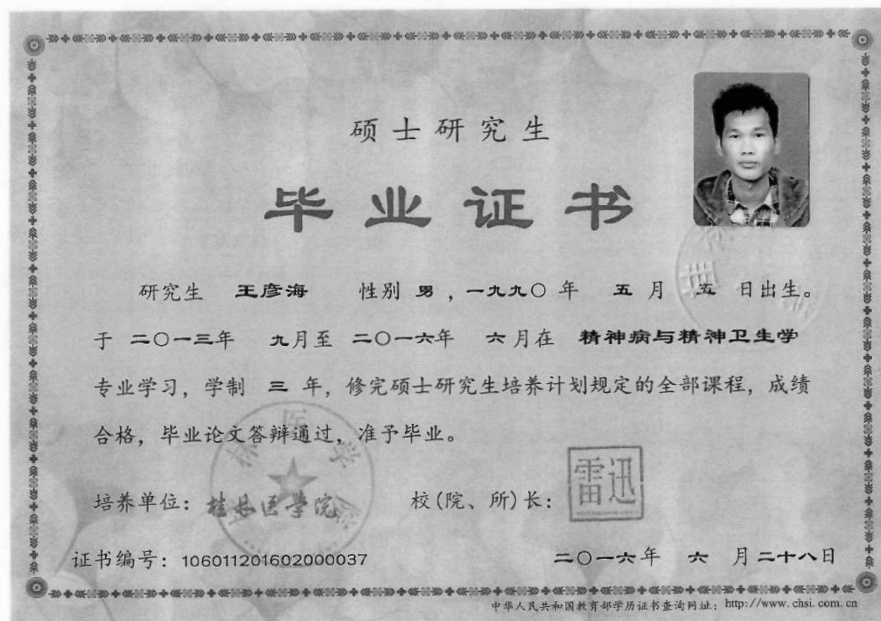 硕士研究生
毕业证书
研究生 王彦海 性别 男，一九九〇年 五月 五日出生。
于 二〇一三年 九月至 二〇一六年 六月在 精神病与精神卫生学
专业学习，学制 三 年，修完硕士研究生培养计划规定的全部课程，成绩
合格，毕业论文答辩通过，准予毕业。
培养单位：桂林医学院 校(院、所)长：雷迅
证书编号：106011201602000037 二〇一六年 六 月二十八日
中华人民共和国教育部学历证书查询网址：http://www.chsi.com.cn